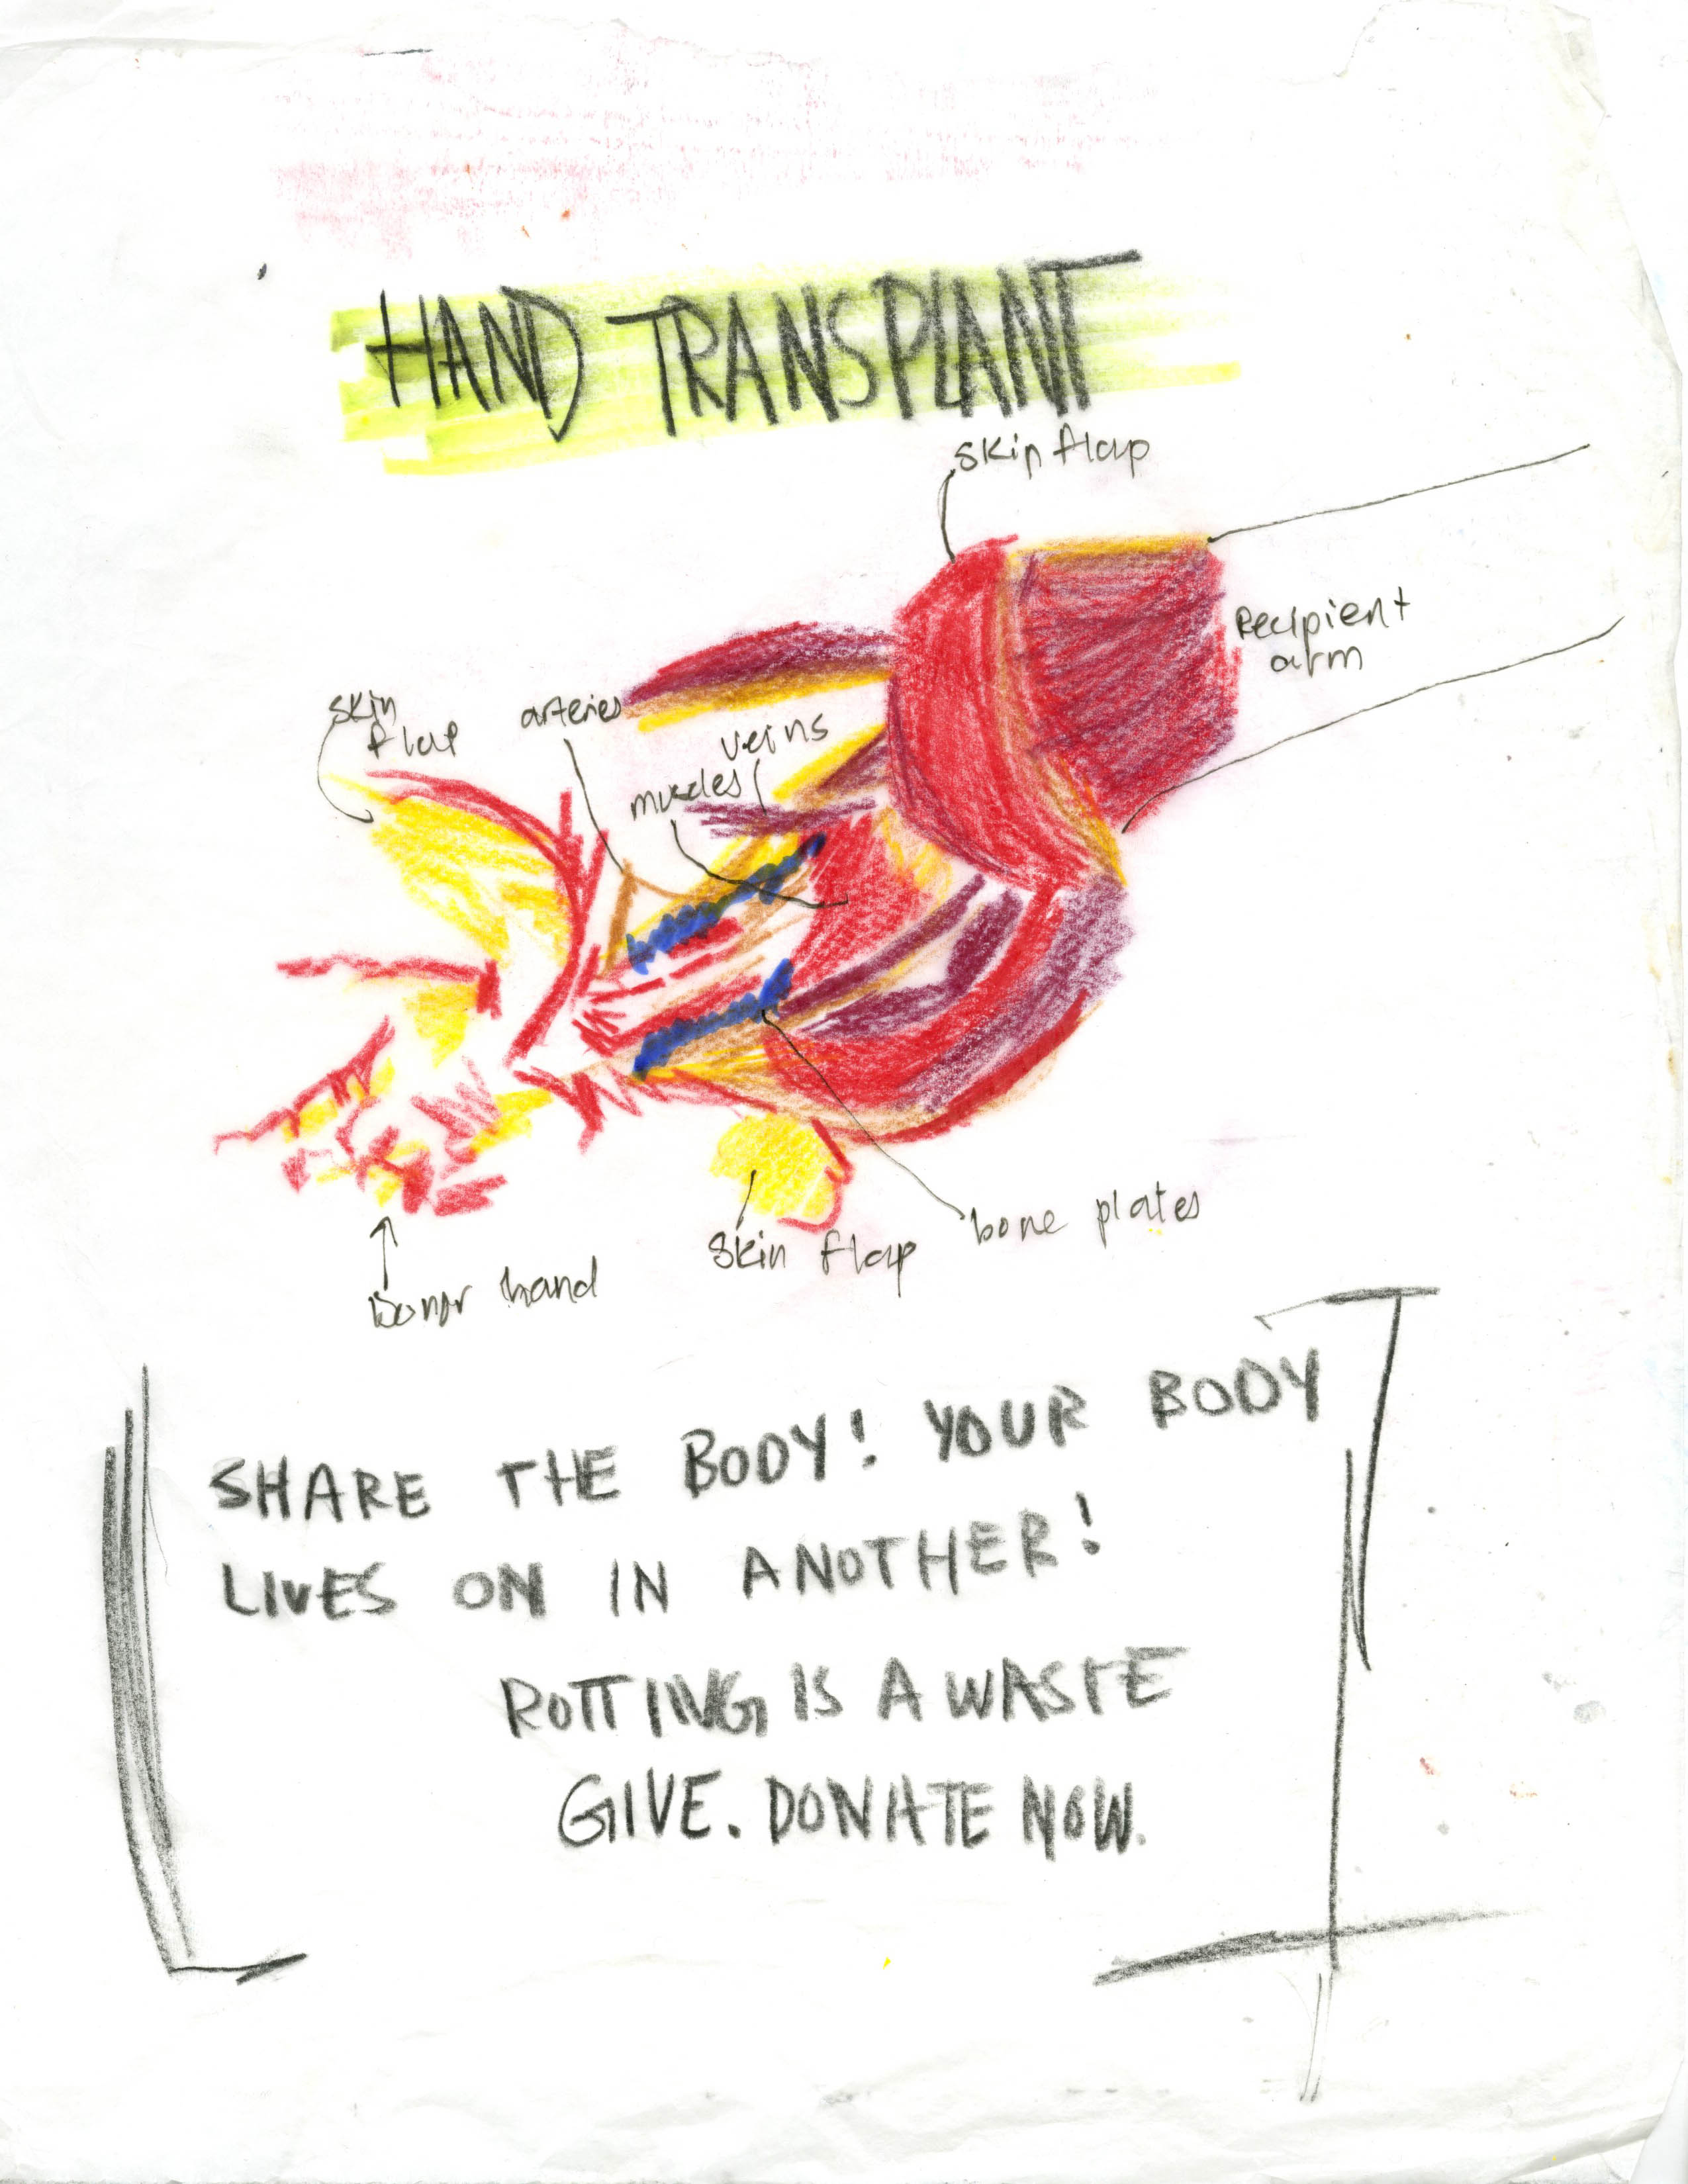 HAND TRANSPLANT
skin flap
Recipient
arm
skin
flap
arteries
veins
muscles
bone plates
skin flap
Donor hand
SHARE THE BODY! YOUR BODY
LIVES ON IN ANOTHER!
ROTTING IS A WASTE
GIVE. DONATE NOW.